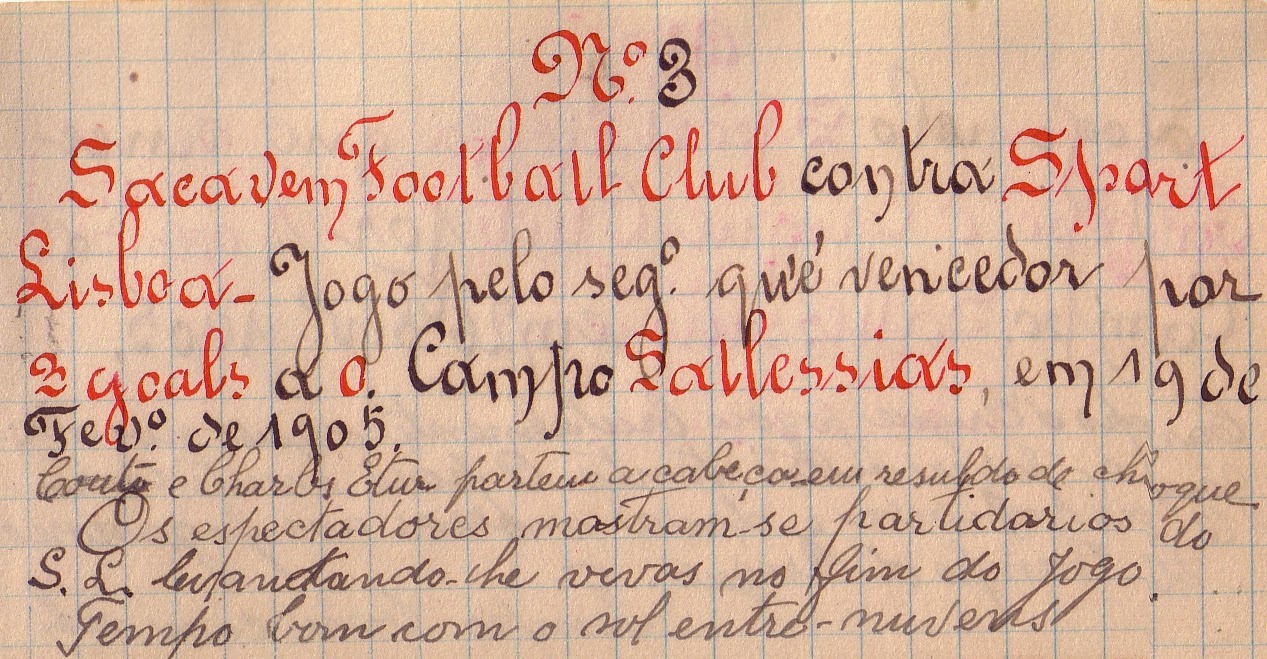 Nº. 3
Sacavem Football Club contra Sport
Lisboa - Jogo pelo segº. qu'é vencedor por
2 goals a 0. Campo Sallessias, em 19 de
Fevº. de 1905.
Couto e Charles Etur partem a cabeça em resultdo de choque
Os espectadores mostram-se partidarios do
S. L. levantando-lhe vivas no fim do Jogo.
Tempo bom com o sol entre-nuvens